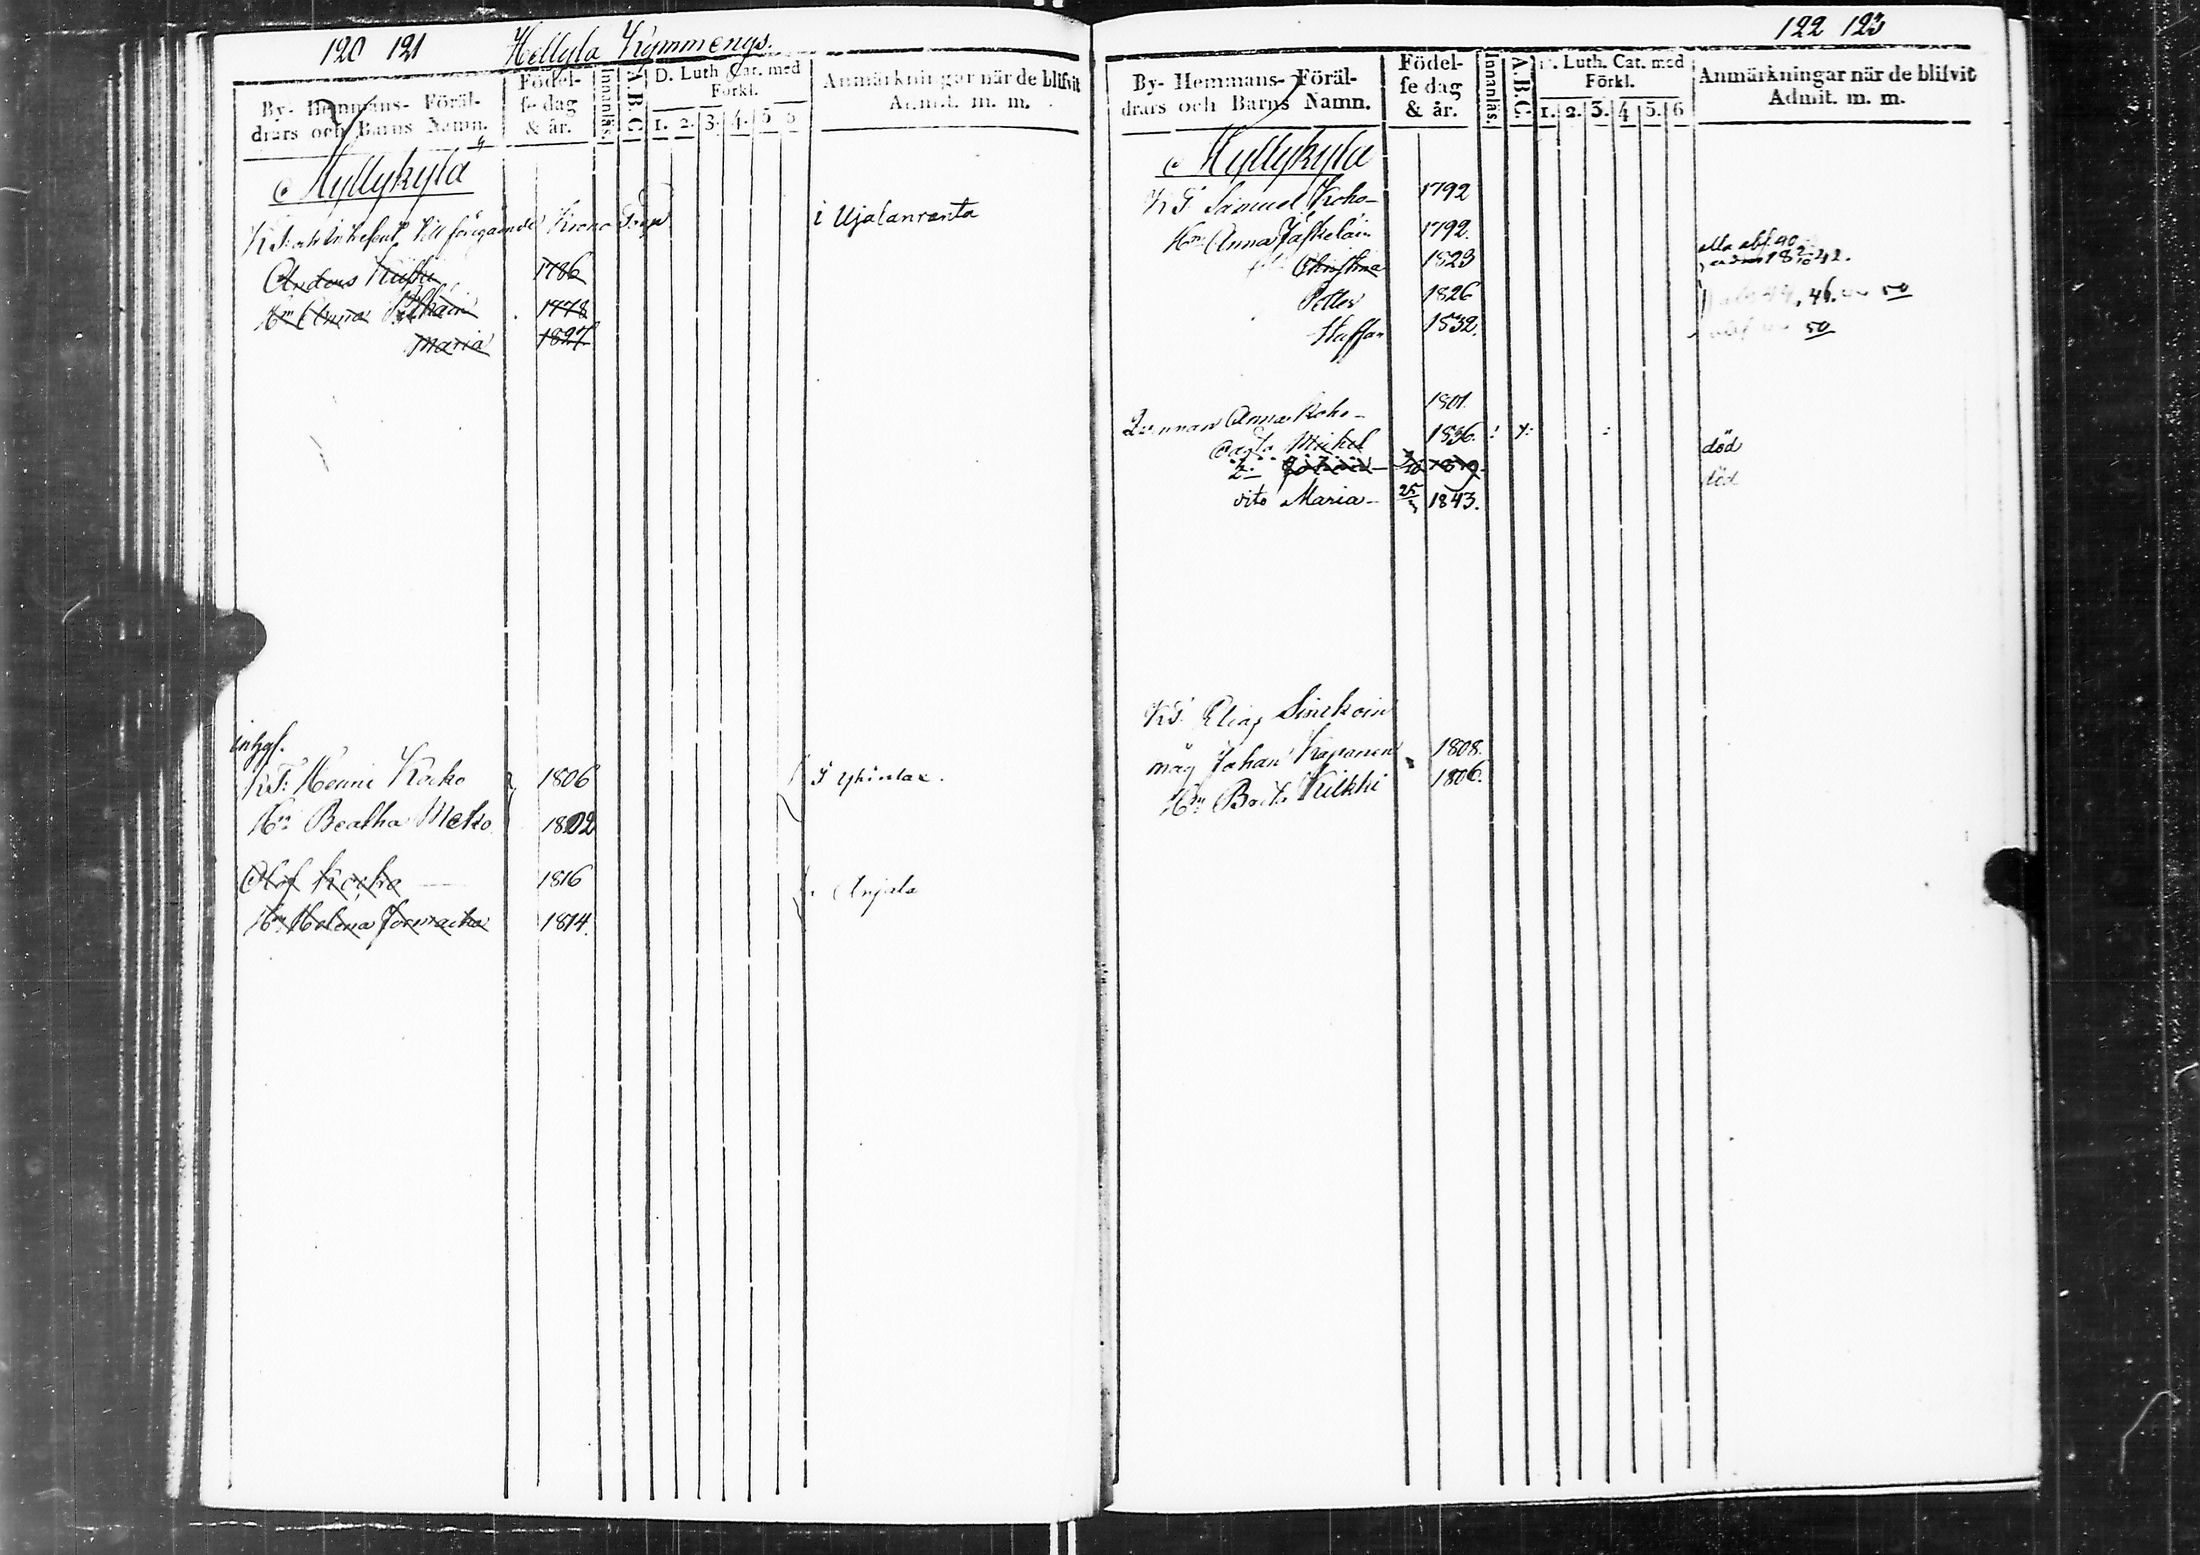 120 121 Hellyla Kymmenegs.
By- Hemmans- Föräl-
drars och Barns Namn.
Födel-
se dag
& år.
Innanläs.
A.B.C
D. Luth. Cat. med
Förkl.
1. 2. 3. 4. 5 6
Anmärkningar när de blifvit
Admit. m. m.
Myllykylä
till föregående Krono Torp
i Ujalanranta
Anders 1786
Hn Anna 1778
Maria 1827
KT: Henric Kocko 1806
Hn Beatha Mcko 1802
Olof Kocko 1816
i Anjala
Hn Helena 1814.
122 123
By- Hemmans- Föräl-
drars och Barns Namn.
Födel-
se dag
& år.
Innanläs.
A.B.C
D. Luth. Cat. med
Förkl.
1. 2. 3. 4 5. 6
Anmärkningar när de blifvit
Admit. m. m.
Myllykylä
KT Samuel Koho- 1792
Hn Anna Jäskeläin 1792.
Christina 1823
Petter 1826 46. 50
Staffan 1832. 50
Qvinnan Anna Koho- 1801.
Michel 1836. död
död
Maria- 25 1843.
KT. Elias Sinckoin
måg Johan Kaponen 1808.
Hn Beata Kilkki 1806.